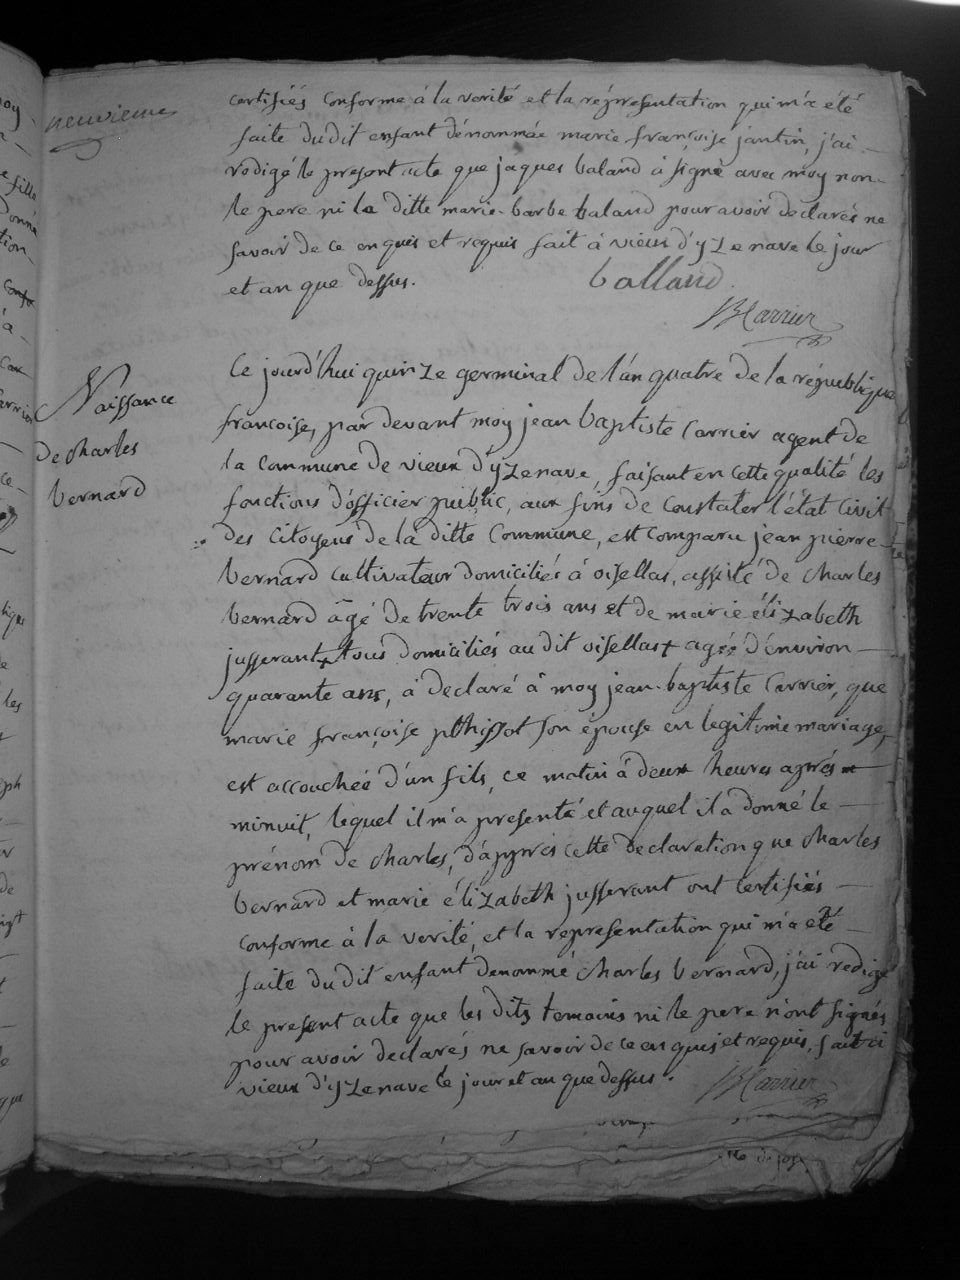 neuvieme
certifiés conforme á la verité et la répresentation qui m'a été
faite du dit enfant dénommée marie françoise jantin, j'ai
redigé le present acte que jaques baland á signé avec moy non
le pere ni la ditte marie-barbe baland pour avoir declarés ne
savoir de ce enquis et requis fait á vieux d'yzenave le jour
et an que dessus.
balland
JB Carrier
Naissance
de charles
bernard
Ce jourd'hui quinze germinal de l'an quatre de la république
françoise, par devant moy jean baptiste Carrier agent de
la Commune de vieux d'yzenave, faisant en cette qualité les
fonctions d'officier public, aux fins de Constater l'état Civil
des Citoyens de la ditte Commune, est comparu jean pierre
bernard cultivateur domiciliés á oisellas, assisté de charles
bernard âgé de trente trois ans et de marie élizabeth
jusserant + tous domiciliés au dit oisellas + agéé d'environ
quarante ans, á declaré á moy jean-baptiste Carrier, que
marie françoise son épouse en legitime mariage,
est accouchée d'un fils, ce matin á deux heures aprés
minuit, lequel il m'a presenté et auquel il á donné le
prénom de charles, d'apprés cette declaration que charles
bernard et marie élizabeth jusserant ont certifiés
conforme á la verité, et la representation qui m'a été
faite du dit enfant denommé charles bernard, j'ai redigé
le present acte que les dits temoins ni le pere n'ont signés
pour avoir declarés ne savoir de ce enquis et requis, fait á
vieux d'yzenave le jour et an que dessus.
JB Carrier